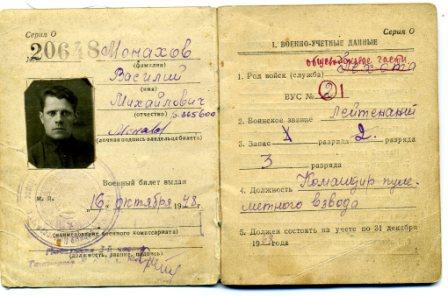 Серия О
20648 Монахов
(фамилия)
Василий
(имя)
Михайлович
(отчество)
(личная подпись владельца билета)
Военный билет выдан
М. П. „16" октября 1948 г.
(наименование военного комиссариата)
(должность, звание, подпись)
Серия О
I. ВОЕННО-УЧЕТНЫЕ ДАННЫЕ
общевойсковые части
1. Род войск (служба) Пехота
ВУС № 21
2. Воинское звание Лейтенант
3. Запас 1 разряда 2. разряда
3 разряда
4. Должность Командир пуле-
метного взвода
5. Должен состоять на учете по 31 декабря
19 г.